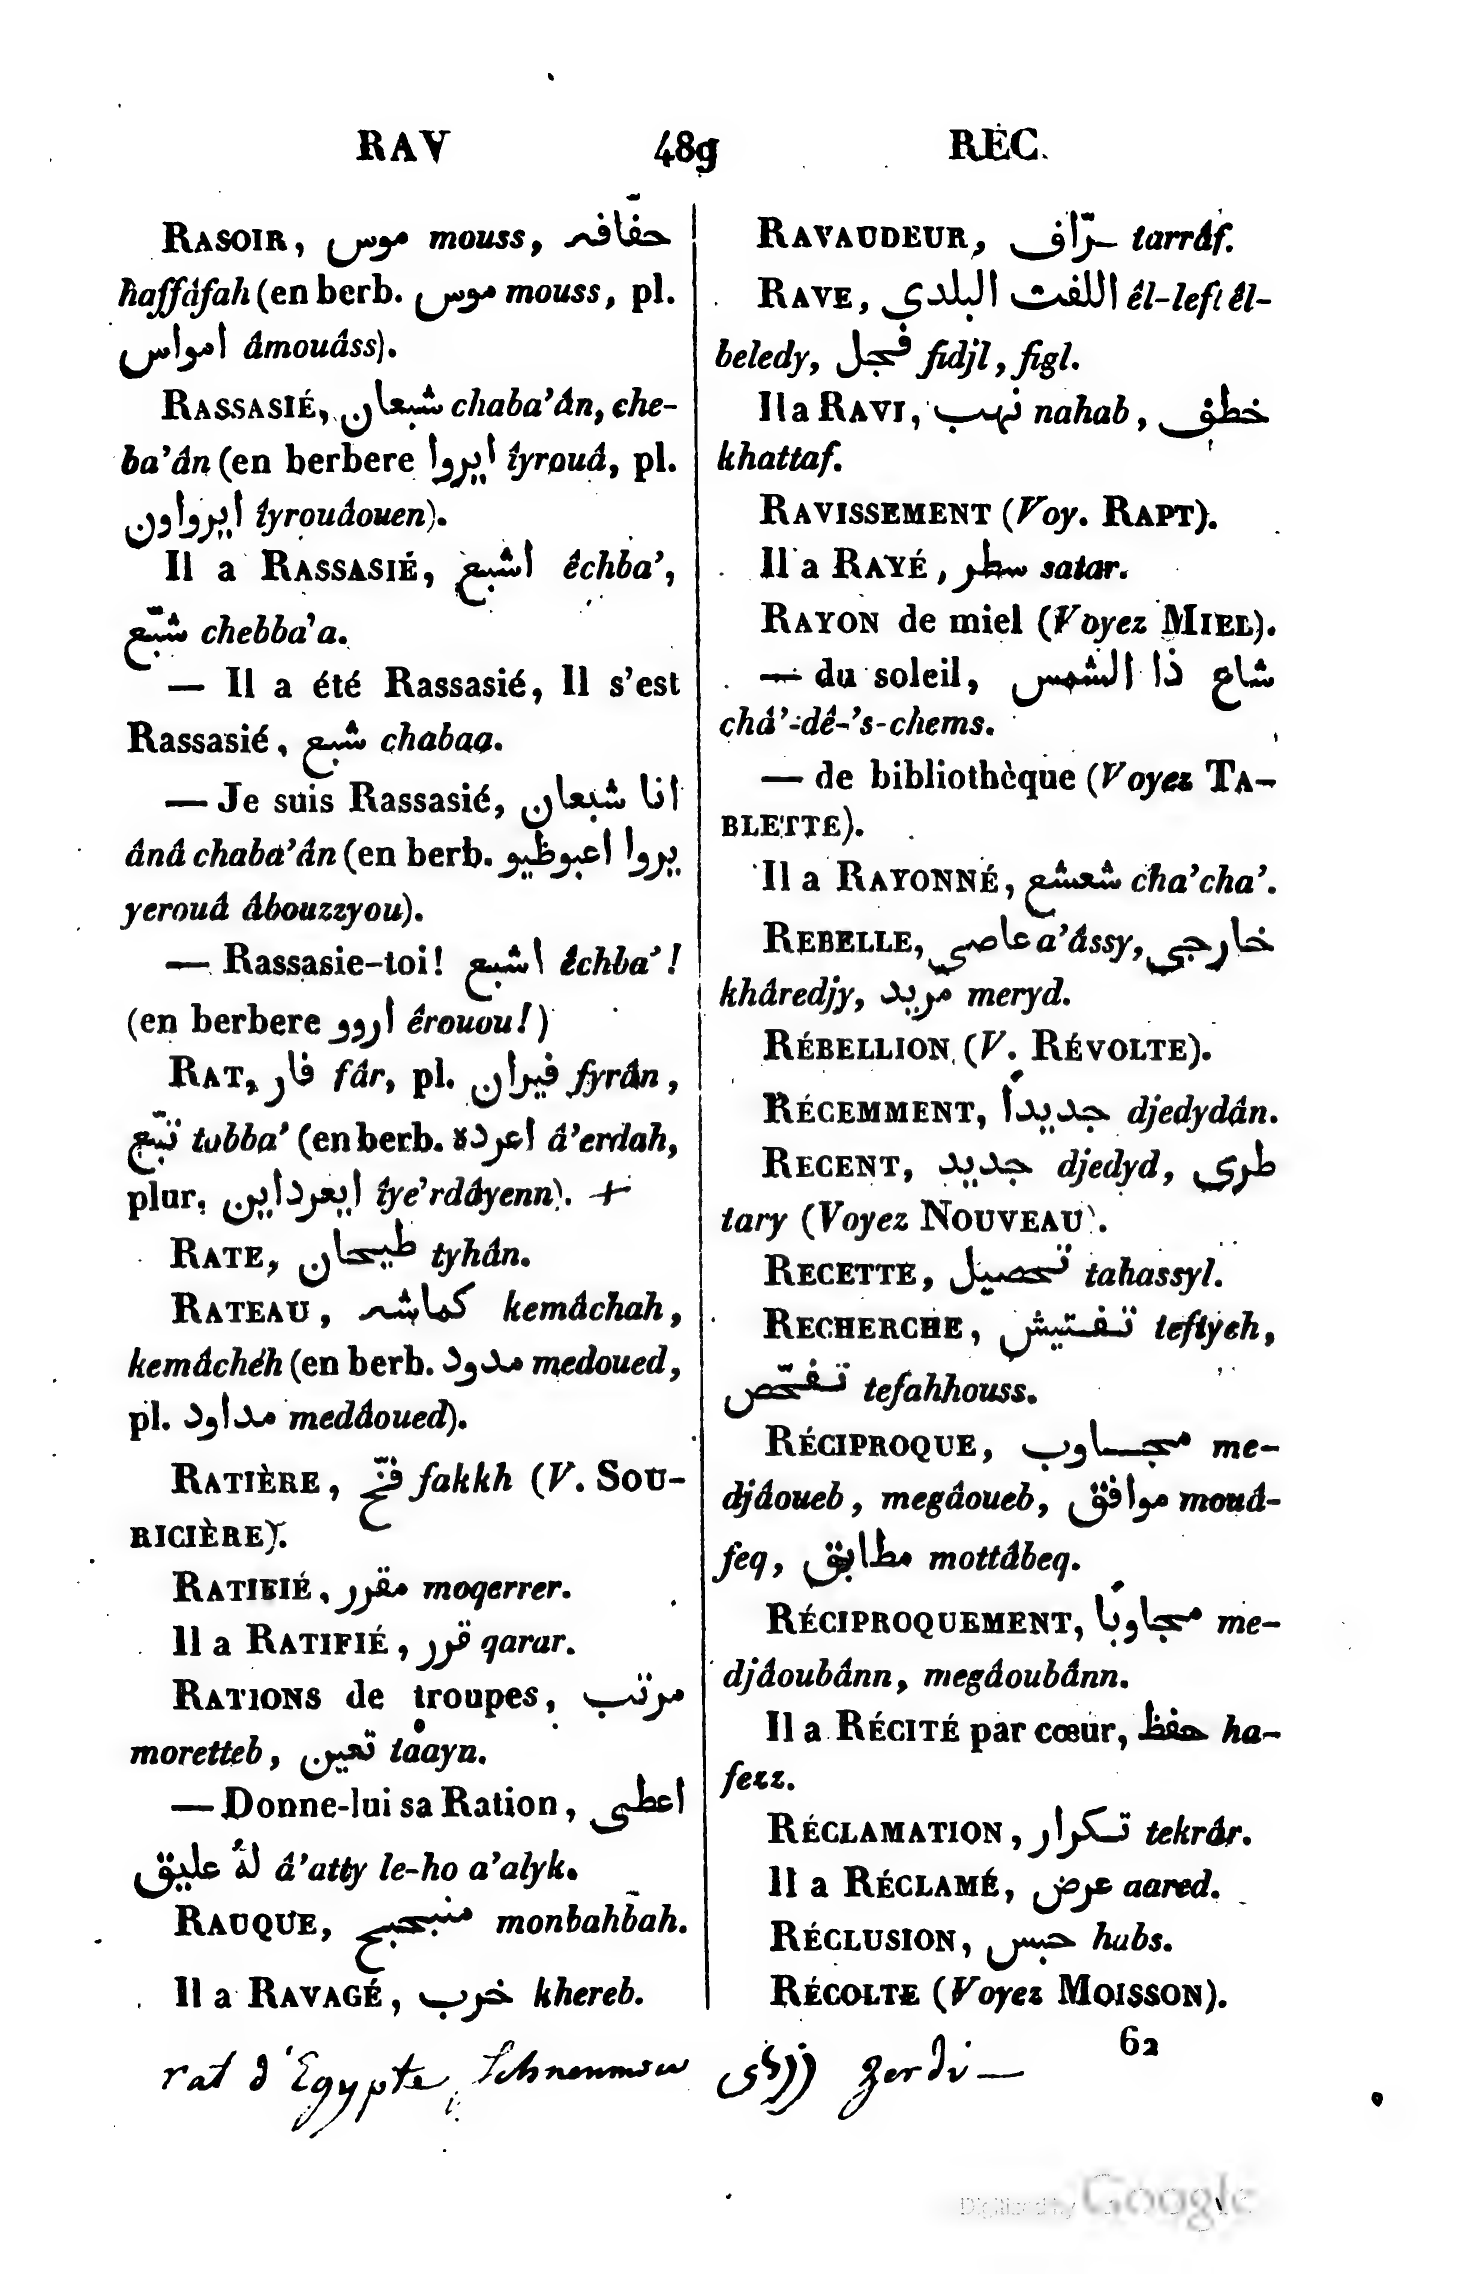 RAV 489 RÉC
RASOIR, موس mouss, حفّافه
haffâfah (en berb. موس mouss, pl.
امواس âmouâss).
RASSASIÉ, شبعان chaba'ân, che-
ba'ân (en berbere ايروا îyrouâ, pl.
ايرواون îyrouâouen).
Il a RASSASIÉ, اشبع êchba',
شبّع chebba'a.
— Il a été Rassasié, Il s'est
Rassasié, شبع chabaa.
— Je suis Rassasié, انا شبعان
ânâ chaba'ân (en berb. يروا اعبوظيو
yerouâ âbouzzyou).
— Rassasie-toi! اشبع êchba'!
(en berbere اروو êrouou!)
RAT, فار fâr, pl. فيران fyrân,
تبّع tubba' (en berb. اعرده â'erdah,
plur. ايعرداين îye'rdâyenn). +
RATE, طيحان tyhân.
RATEAU, كماشه kemâchah,
kemâchéh (en berb. مدود medoued,
pl. مداود medâoued).
RATIÈRE, فخّ fakkh (V. SOU-
RICIÈRE).
RATIFIÉ, مقرر moqerrer.
Il a RATIFIÉ, قرر qarar.
RATIONS de troupes, مرتب
moretteb, تعين taayn.
— Donne-lui sa Ration, اعطى
لهُ عليق â'atty le-ho a'alyk.
RAUQUE, منبحبح monbahbah.
Il a RAVAGÉ, خرب khereb.
RAVAUDEUR, طرّاف tarrâf.
RAVE, اللفت البلدي êl-left êl-
beledy, فجل fidjl, figl.
Il a RAVI, نهب nahab, خطف
khattaf.
RAVISSEMENT (Voy. RAPT).
Il a RAYÉ, سطر satar.
RAYON de miel (Voyez MIEL).
— du soleil, شاع ذا الشمس
châ'-dê-'s-chems.
— de bibliothèque (Voyez TA-
BLETTE).
Il a RAYONNÉ, شعشع cha'cha'.
REBELLE, عاصي a'âssy, خارجي
khâredjy, مريد meryd.
RÉBELLION (V. RÉVOLTE).
RÉCEMMENT, جديداً djedydân.
RECENT, جديد djedyd, طري
tary (Voyez NOUVEAU).
RECETTE, تحصيل tahassyl.
RECHERCHE, تفتيش teftyeh,
تفحّص tefahhouss.
RÉCIPROQUE, مجاوب me-
djâoueb, megâoueb, موافق mouâ-
feq, مطابق mottâbeq.
RÉCIPROQUEMENT, مجاوبًا me-
djâoubânn, megâoubânn.
Il a RÉCITÉ par cœur, حفظ ha-
fezz.
RÉCLAMATION, تكرار tekrâr.
Il a RÉCLAMÉ, عرض aared.
RÉCLUSION, حبس habs.
RÉCOLTE (Voyez MOISSON).
62
rat d'Egypte, Ichneumon زردى zerdi —
Digitized by Google